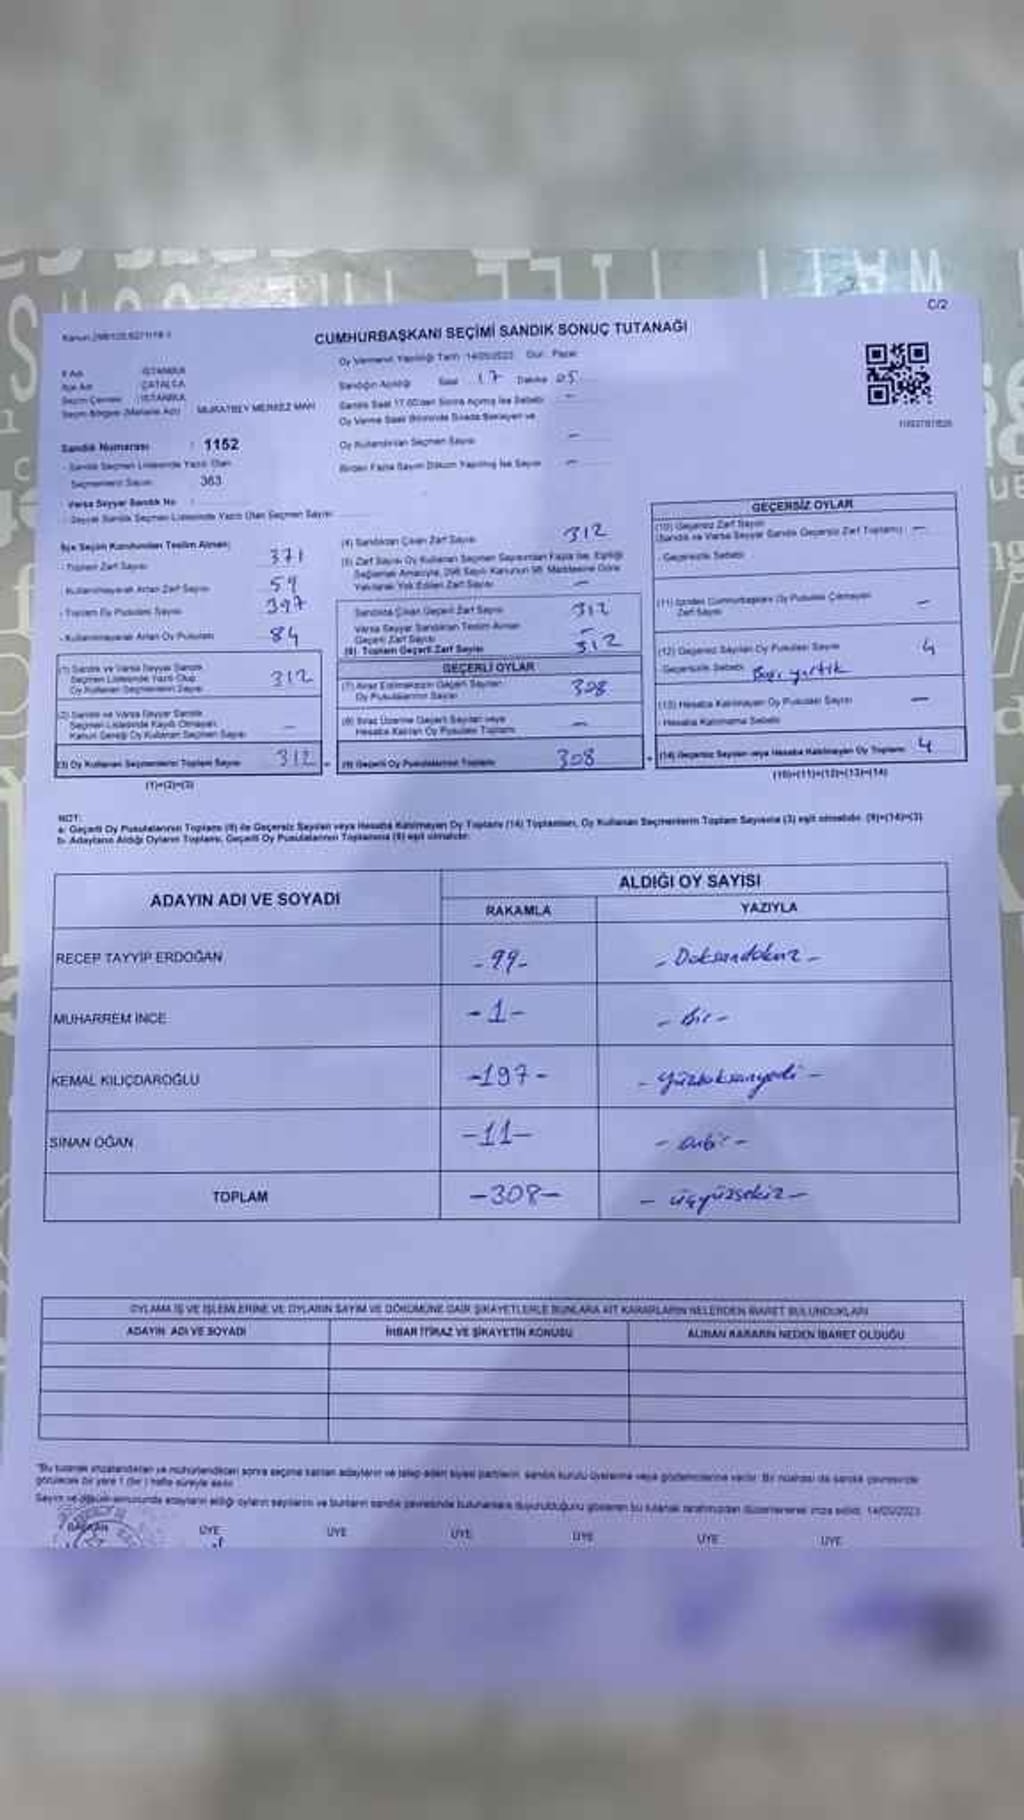 C/2
CUMHURBAŞKANI SEÇİMİ SANDIK SONUÇ TUTANAĞI
Oy Vermenin Yapıldığı Tarih 14/05/2023 Gün Pazar
İl Adı İSTANBUL
İlçe Adı ÇATALCA
Seçim Çevresi İSTANBUL
Seçim Bölgesi (Mahalle Adı) MURATBEY MERKEZ MAH
Sandık Numarası : 1152
- Sandık Seçmen Listesinde Yazılı Olan
Seçmenlerin Sayısı 363
Varsa Seyyar Sandık No :
- Seyyar Sandık Seçmen Listesinde Yazılı Olan Seçmen Sayısı
Sandığın Açıldığı Saat 17 Dakika 05
Sandık Saat 17.00'den Sonra Açılmış İse Sebebi —
Oy Verme Saati Bitiminde Sırada Bekleyen ve
Oy Kullandırılan Seçmen Sayısı —
Birden Fazla Sayım Döküm Yapılmış İse Sayısı —
İlçe Seçim Kurulundan Teslim Alınan;
- Toplam Zarf Sayısı 371
- Kullanılmayarak Artan Zarf Sayısı 59
- Toplam Oy Pusulası Sayısı 397
- Kullanılmayarak Artan Oy Pusulası 84
(1) Sandık ve Varsa Seyyar Sandık
Seçmen Listesinde Yazılı Olup
Oy Kullanan Seçmenlerin Sayısı 312
(2) Sandık ve Varsa Seyyar Sandık
Seçmen Listesinde Kayıtlı Olmayan,
Kanun Gereği Oy Kullanan Seçmen Sayısı —
(3) Oy Kullanan Seçmenlerin Toplam Sayısı 312
(1)+(2)=(3)
(4) Sandıktan Çıkan Zarf Sayısı 312
(5) Zarf Sayısı Oy Kullanan Seçmen Sayısından Fazla İse, Eşitliği
Sağlamak Amacıyla, 298 Sayılı Kanunun 98. Maddesine Göre
Yakılarak Yok Edilen Zarf Sayısı —
Sandıkta Çıkan Geçerli Zarf Sayısı 312
Varsa Seyyar Sandıktan Teslim Alınan
Geçerli Zarf Sayısı —
(6) Toplam Geçerli Zarf Sayısı 312
GEÇERLİ OYLAR
(7) İtiraz Edilmeksizin Geçerli Sayılan
Oy Pusulalarının Sayısı 308
(8) İtiraz Üzerine Geçerli Sayılan veya
Hesaba Katılan Oy Pusulası Toplamı —
(9) Geçerli Oy Pusulalarının Toplamı 308
GEÇERSİZ OYLAR
(10) Geçersiz Zarf Sayısı
(Sandık ve Varsa Seyyar Sandık Geçersiz Zarf Toplamı) —
- Geçersizlik Sebebi
(11) İçinden Cumhurbaşkanı Oy Pusulası Çıkmayan
Zarf Sayısı —
(12) Geçersiz Sayılan Oy Pusulası Sayısı 4
Geçersizlik Sebebi yırtık
(13) Hesaba Katılmayan Oy Pusulası Sayısı —
- Hesaba Katılmama Sebebi
(14) Geçersiz Sayılan veya Hesaba Katılmayan Oy Toplamı 4
(10)+(11)+(12)+(13)=(14)
NOT:
a- Geçerli Oy Pusulalarının Toplamı (9) ile Geçersiz Sayılan veya Hesaba Katılmayan Oy Toplamı (14) Toplamları, Oy Kullanan Seçmenlerin Toplam Sayısına (3) eşit olmalıdır. (9)+(14)=(3)
b- Adayların Aldığı Oyların Toplamı, Geçerli Oy Pusulalarının Toplamına (9) eşit olmalıdır.
ADAYIN ADI VE SOYADI
ALDIĞI OY SAYISI
RAKAMLA YAZIYLA
RECEP TAYYİP ERDOĞAN -99- - Doksandokuz -
MUHARREM İNCE -1- - Bir -
KEMAL KILIÇDAROĞLU -197- - Yüzdoksanyedi -
SİNAN OĞAN -11- - onbir -
TOPLAM -308- - üçyüzsekiz -
OYLAMA İŞ VE İŞLEMLERİNE VE OYLARIN SAYIM VE DÖKÜMÜNE DAİR ŞİKAYETLERLE BUNLARA AİT KARARLARIN NELERDEN İBARET BULUNDUKLARI
ADAYIN ADI VE SOYADI İHBAR İTİRAZ VE ŞİKAYETİN KONUSU ALINAN KARARIN NEDEN İBARET OLDUĞU
"Bu tutanak imzalandıktan ve mühürlendikten sonra seçime katılan adayların ve talep eden siyasi partilerin sandık kurulu üyelerine veya gözlemcilerine verilir. Bir nüshası da sandık çevresinde
görülecek bir yere 1 (bir) hafta süreyle asılır.
Sayım ve döküm sonucunda adayların aldığı oyların sayılarını ve bunların sandık çevresinde bulunanlara duyurulduğunu gösteren bu tutanak tarafımızdan düzenlenerek imza edildi. 14/05/2023
BAŞKAN ÜYE ÜYE ÜYE ÜYE ÜYE ÜYE